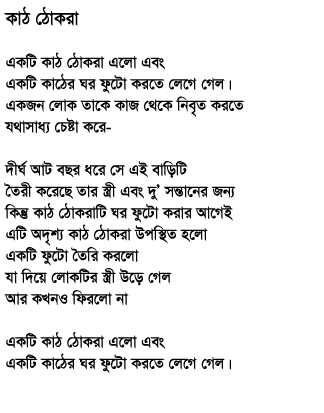 কাঠ ঠোকরা
একটি কাঠ ঠোকরা এলো এবং
একটি কাঠের ঘর ফুটো করতে লেগে গেল।
একজন লোক তাকে কাজ থেকে নিবৃত করতে
যথাসাধ্য চেষ্টা করে-
দীর্ঘ আট বছর ধরে সে এই বাড়িটি
তৈরী করেছে তার স্ত্রী এবং দু’ সন্তানের জন্য
কিন্তু কাঠ ঠোকরাটি ঘর ফুটো করার আগেই
এটি অদৃশ্য কাঠ ঠোকরা উপস্থিত হলো
একটি ফুটো তৈরি করলো
যা দিয়ে লোকটির স্ত্রী উড়ে গেল
আর কখনও ফিরলো না
একটি কাঠ ঠোকরা এলো এবং
একটি কাঠের ঘর ফুটো করতে লেগে গেল।